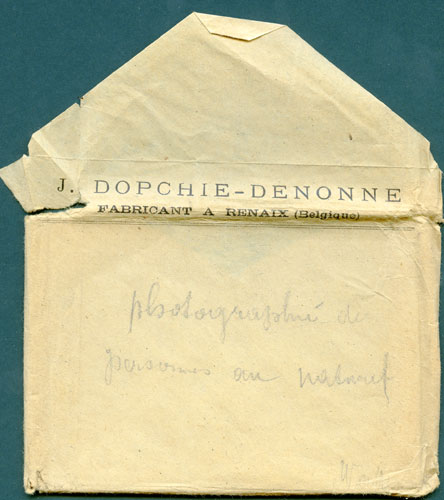 J. DOPCHIE-DENONNE
FABRICANT A RENAIX (Belgique)
photographie de
personnes au naturel